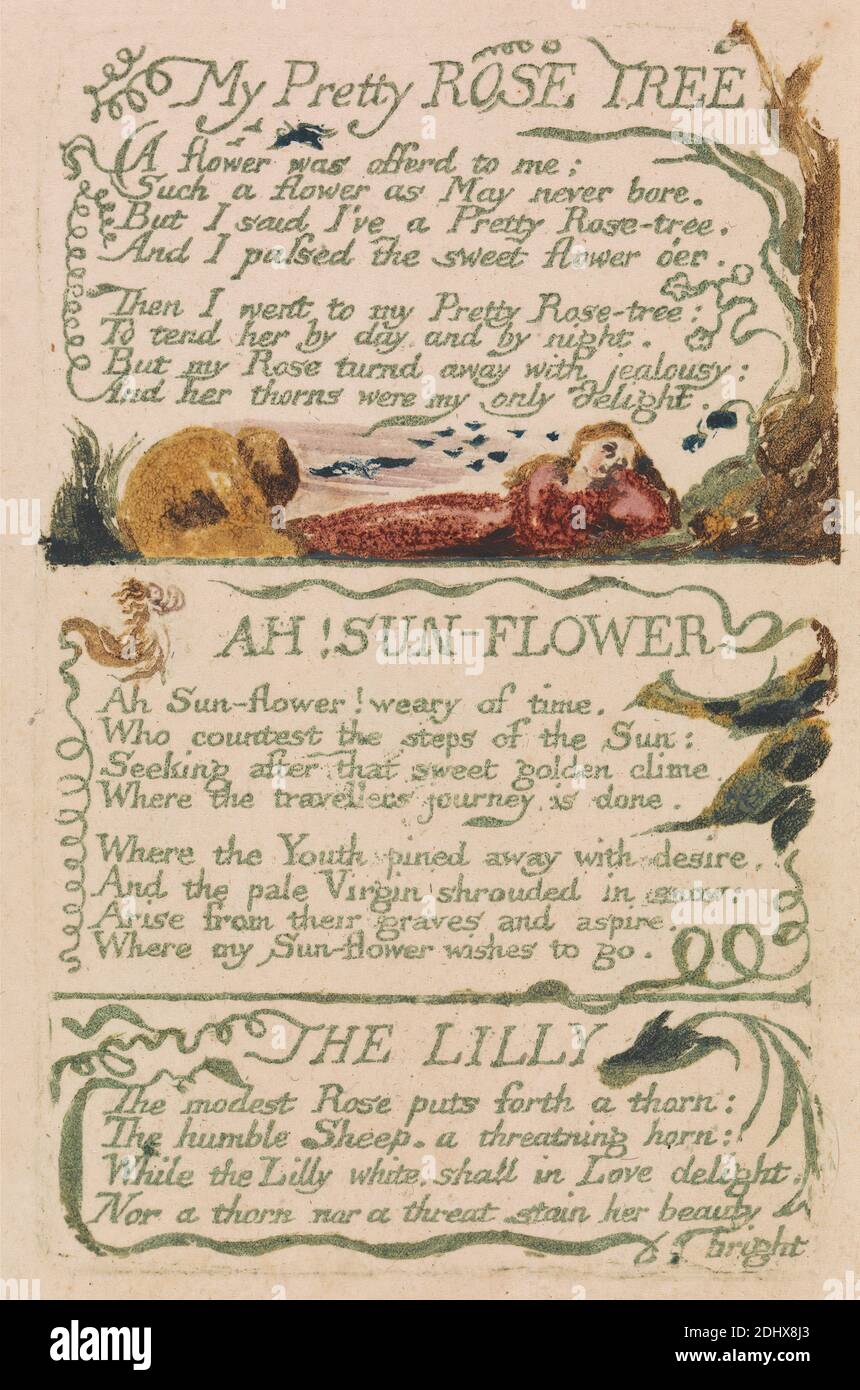 My Pretty ROSE TREE
A flower was offerd to me;
Such a flower as May never bore.
But I said I've a Pretty Rose-tree.
And I paſsed the sweet flower o'er.
Then I went to my Pretty Rose-tree:
To tend her by day and by night.
But my Rose turnd away with jealousy:
And her thorns were my only delight.
AH! SUN-FLOWER
Ah Sun-flower! weary of time.
Who countest the steps of the Sun:
Seeking after that sweet golden clime
Where the travellers journey is done.
Where the Youth pined away with desire,
And the pale Virgin shrouded in snow:
Arise from their graves and aspire.
Where my Sun-flower wishes to go.
THE LILLY
The modest Rose puts forth a thorn:
The humble Sheep. a threatning horn:
While the Lilly white, shall in Love delight,
Nor a thorn nor a threat stain her beauty
bright
alamy
alamy
alamy
Image ID: 2DHX8J3
www.alamy.com